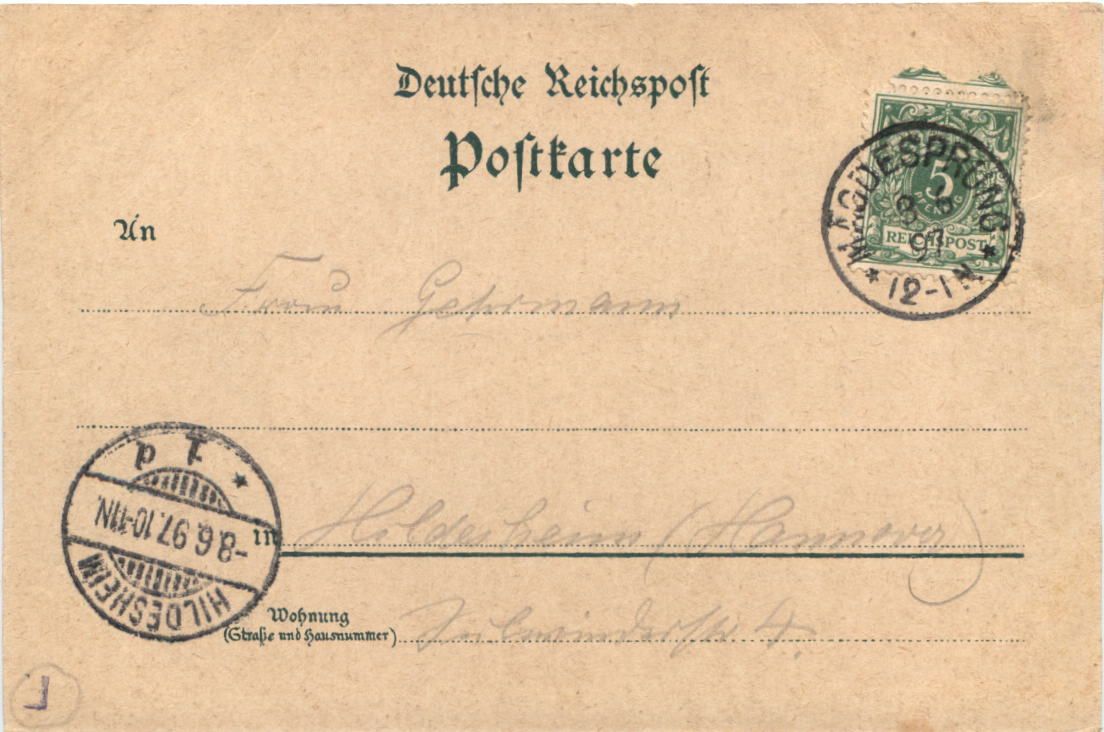 Deutsche Reichspost
Postkarte
5
PFENNIG
REICHSPOST
MÄGDESPRUNG
8 6
97
* 12-1N *
An
Frau Gehrmann
1 d *
-8.6.97.10-11N.
HILDESHEIM
in Hildesheim (Hannover)
Wohnung
(Straße und Hausnummer)
4.